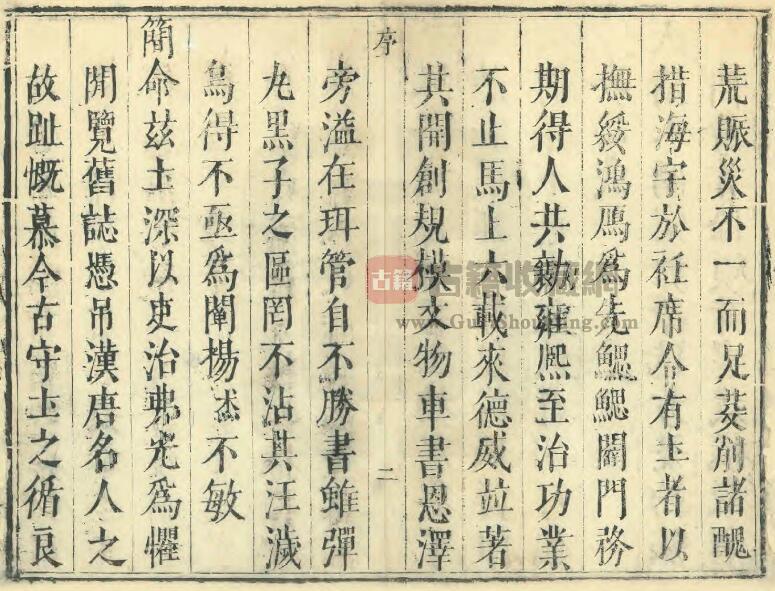 荒賑災不一而足芟削諸醜
措海宇於衽席令有土者以
撫綏鴻鴈爲先鰓鰓闢門務
期得人共勷雍熈至治功業
不止馬上六載來德威竝著
其開創規模文物車書恩澤
序
二
旁溢在珥管自不勝書雖彈
丸黒子之區罔不沾其汪濊
烏得不亟爲闡揚不敏
簡命兹土深以吏治弗光爲懼
閒覽舊誌憑吊漢唐名人之
故趾慨慕今古守土之循良
古籍
古籍收藏網
www.GuJiShouCang.com